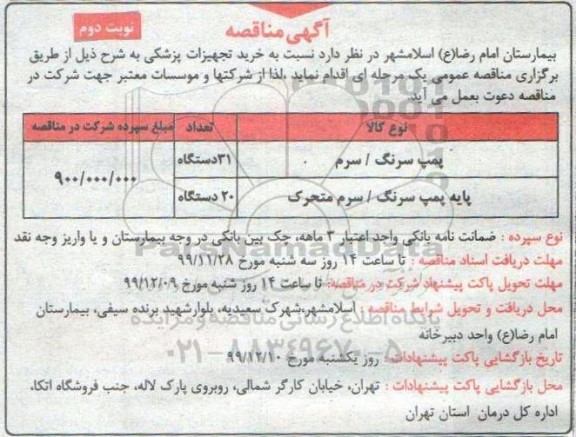 آگهی مناقصه
نوبت دوم
بیمارستان امام رضا(ع) اسلامشهر در نظر دارد نسبت به خرید تجهیزات پزشکی به شرح ذیل از طریق
برگزاری مناقصه عمومی یک مرحله ای اقدام نماید .لذا از شرکتها و موسسات معتبر جهت شرکت در
مناقصه دعوت بعمل می آید.
نوع کالا تعداد مبلغ سپرده شرکت در مناقصه
پمپ سرنگ / سرم ۳۱دستگاه ۹۰۰/۰۰۰/۰۰۰
پایه پمپ سرنگ / سرم متحرک ۲۰ دستگاه
نوع سپرده : ضمانت نامه بانکی واجد اعتبار ۳ ماهه، چک بین بانکی در وجه بیمارستان و یا واریز وجه نقد
مهلت دریافت اسناد مناقصه : تا ساعت ۱۴ روز سه شنبه مورخ ۹۹/۱۱/۲۸
مهلت تحویل پاکت پیشنهاد شرکت در مناقصه: تا ساعت ۱۴ روز شنبه مورخ ۹۹/۱۲/۰۹
محل دریافت و تحویل شرایط مناقصه : اسلامشهر،شهرک سعیدیه، بلوارشهید برنده سیفی، بیمارستان
امام رضا(ع) واحد دبیرخانه
تاریخ بازگشایی پاکت پیشنهادات : روز یکشنبه مورخ ۹۹/۱۲/۱۰
محل بازگشایی پاکت پیشنهادات : تهران، خیابان کارگر شمالی، روبروی پارک لاله، جنب فروشگاه اتکا،
اداره کل درمان استان تهران
ParsNamadData
پایگاه اطلاع رسانی مناقصه و مزایده
۰۲۱-۸۸۳۴۹۶۷۰-۵